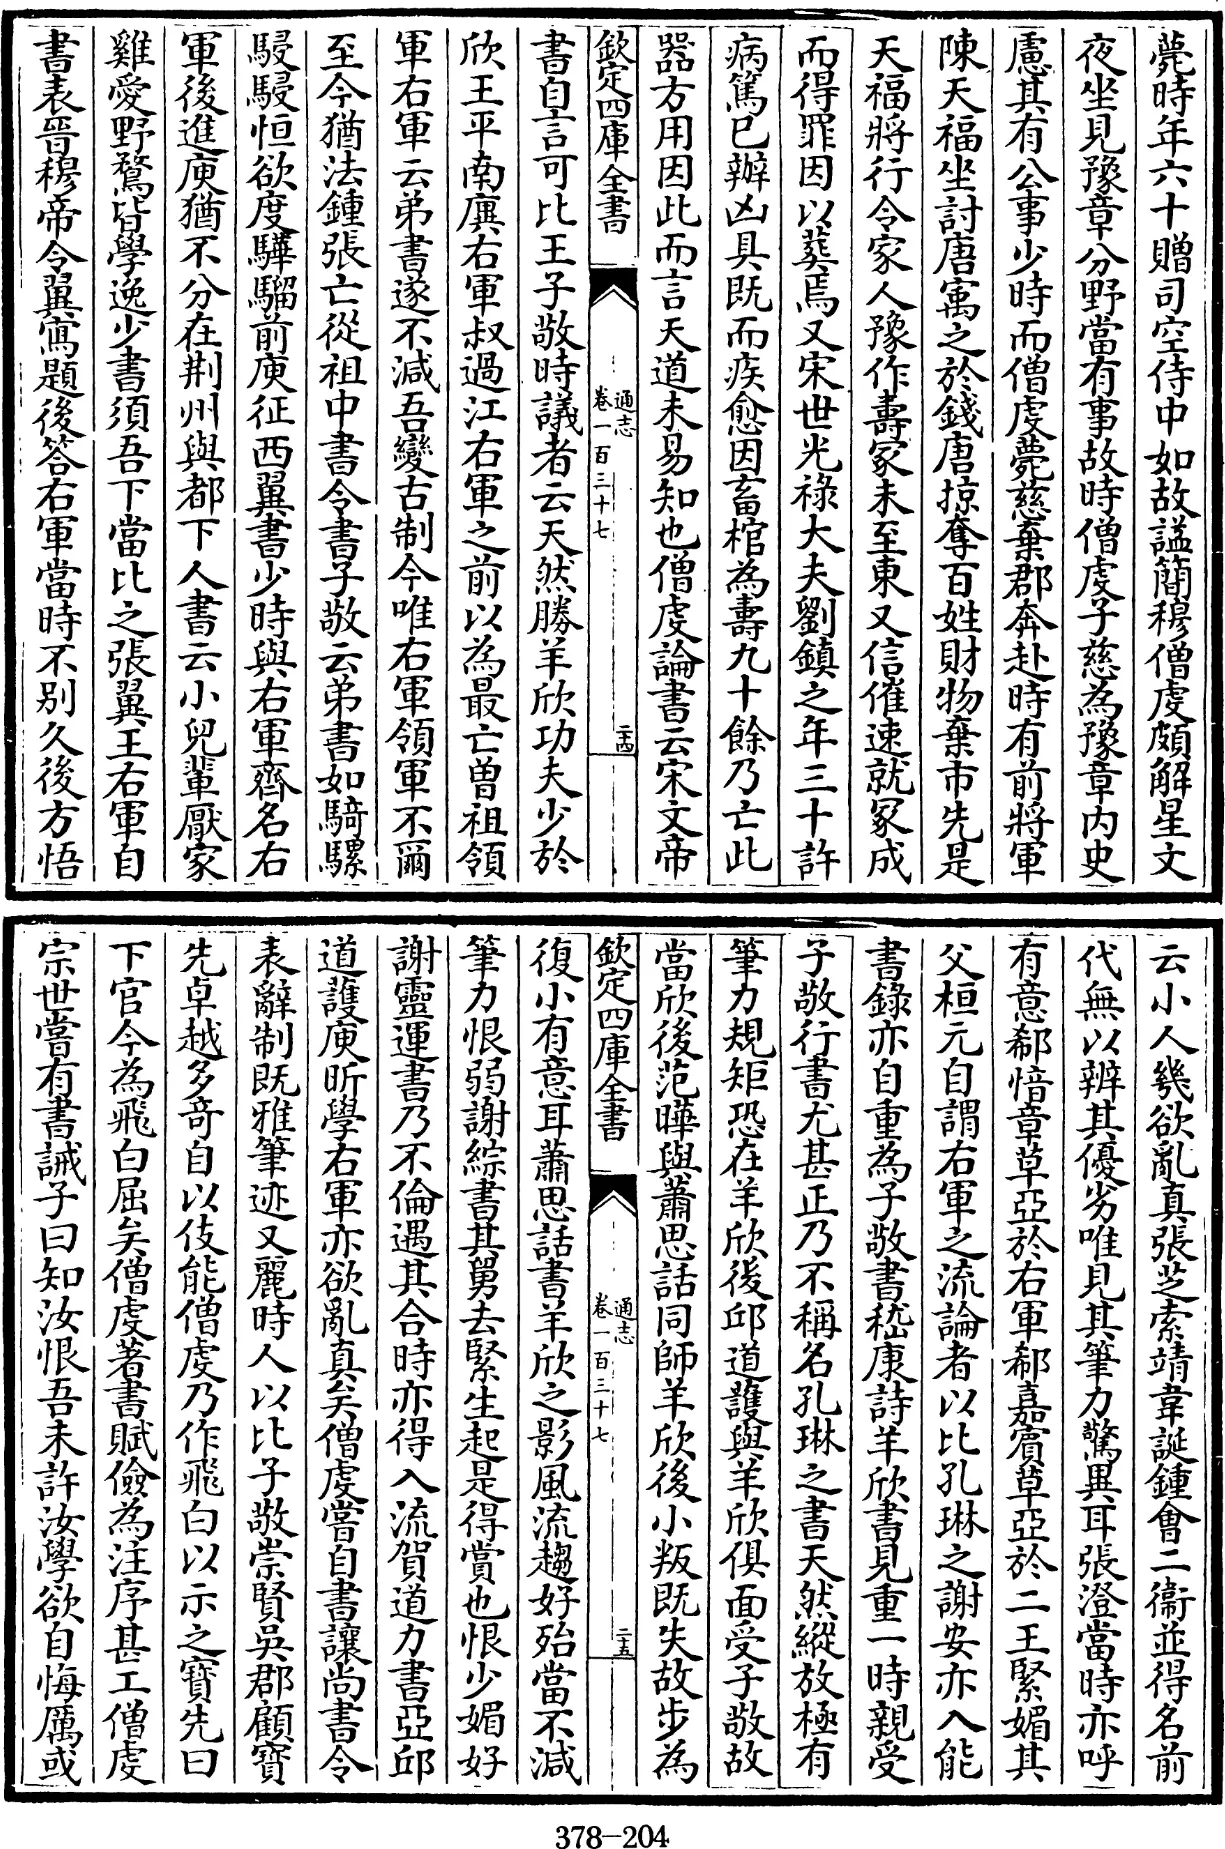 薨時年六十贈司空侍中如故諡簡穆僧虔頗解星文
夜坐見豫章分野當有事故時僧虔子慈為豫章内史
慮其有公事少時而僧虔薨慈棄郡奔赴時有前將軍
陳天福坐討唐寓之於錢唐掠奪百姓財物棄市先是
天福將行令家人豫作壽冢未至東又信催速就冢成
而得罪因以葬焉又宋世光祿大夫劉鎮之年三十許
病篤已辦凶具既而疾愈因畜棺為壽九十餘乃亡此
器方用因此而言天道未易知也僧虔論書云宋文帝
欽定四庫全書
通志
卷一百三十七
二十四
書自言可比王子敬時議者云天然勝羊欣功夫少於
欣王平南廙右軍叔過江右軍之前以為最亡曾祖領
軍右軍云弟書遂不減吾變古制今唯右軍領軍不爾
至今猶法鍾張亡從祖中書令書子敬云弟書如騎騾
駸駸恒欲度驊騮前庾征西翼書少時與右軍齊名右
軍後進庾猶不分在荆州與都下人書云小兒輩厭家
雞愛野鶩皆學逸少書須吾下當比之張翼王右軍自
書表晉穆帝令翼寫題後答右軍當時不別久後方悟
云小人幾欲亂真張芝索靖韋誕鍾會二衞並得名前
代無以辨其優劣唯見其筆力驚異耳張澄當時亦呼
有意郗愔章草亞於右軍郗嘉賓草亞於二王緊媚其
父桓元自謂右軍之流論者以比孔琳之謝安亦入能
書錄亦自重為子敬書嵇康詩羊欣書見重一時親受
子敬行書尤甚正乃不稱名孔琳之書天然縱放極有
筆力規矩恐在羊欣後邱道護與羊欣俱面受子敬故
當欣後范曄與蕭思話同師羊欣後小叛既失故步為
欽定四庫全書
通志
卷一百三十七
二十五
復小有意耳蕭思話書羊欣之影風流趨好殆當不減
筆力恨弱謝綜書其舅去緊生起是得賞也恨少媚好
謝靈運書乃不倫遇其合時亦得入流賀道力書亞邱
道護庾昕學右軍亦欲亂真矣僧虔嘗自書讓尚書令
表辭制既雅筆迹又麗時人以比子敬崇賢吳郡顧寶
先卓越多奇自以伎能僧虔乃作飛白以示之寶先曰
下官今為飛白屈矣僧虔著書賦儉為注序甚工僧虔
宗世嘗有書誡子曰知汝恨吾未許汝學欲自悔厲或
378-204